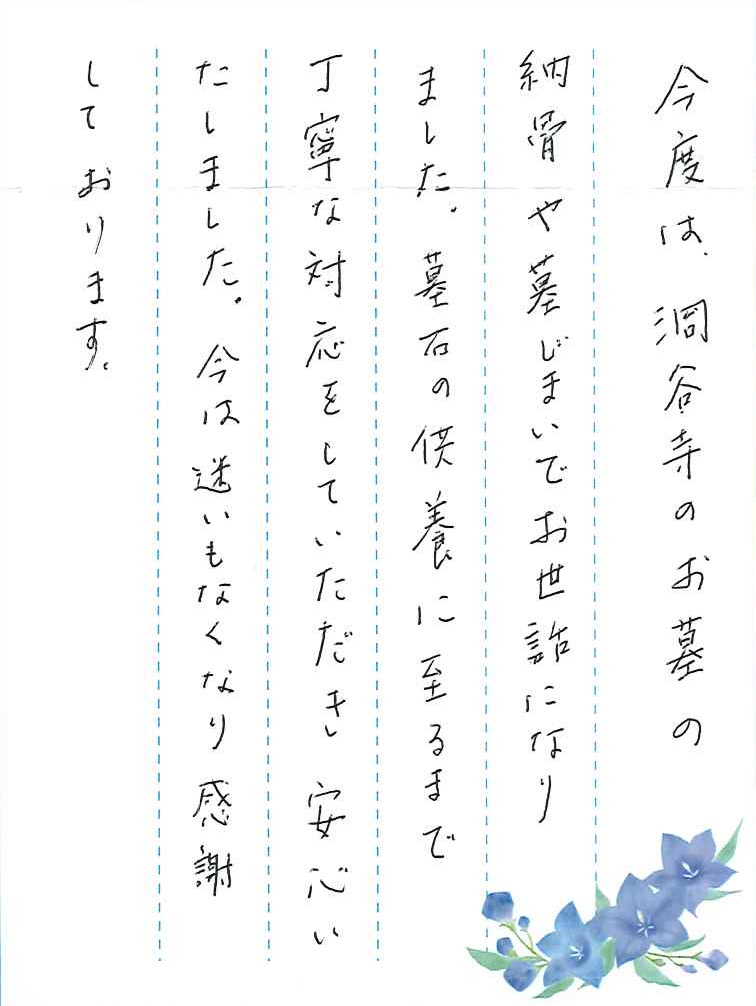 今度は、洞谷寺のお墓の
納骨や墓じまいでお世話になり
ました。墓石の供養に至るまで
丁寧な対応をしていただき安心い
たしました。今は迷いもなくなり感謝
しております。